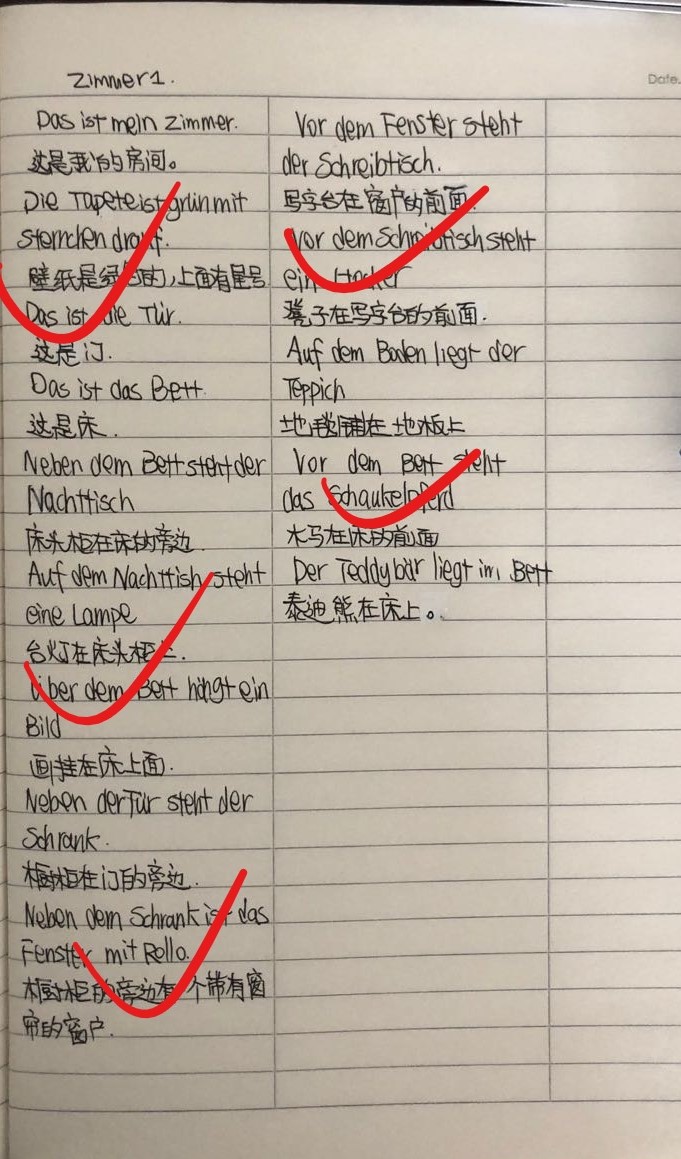 Zimmer1.
Date.
Das ist mein Zimmer.
这是我的房间。
Die Tapete ist grün mit
sternchen drauf.
壁纸是绿色的,上面有星号
Das ist die Tür.
这是门.
Das ist das Bett.
这是床.
Neben dem Bett steht der
Nachttisch
床头柜在床的旁边.
Auf dem Nachttish steht
eine Lampe
台灯在床头柜上.
Über dem Bett hängt ein
Bild
画挂在床上面.
Neben der Tür steht der
Schrank.
橱柜在门的旁边.
Neben dem Schrank ist das
Fenster mit Rollo.
橱柜的旁边有一个带有窗
帘的窗户.
Vor dem Fenster steht
der Schreibtisch.
写字台在窗户的前面.
Vor dem Schreibtisch steht
ein Hocker
凳子在写字台的前面.
Auf dem Boden liegt der
Teppich
地毯铺在地板上
Vor dem Bett steht
das Schaukelpferd
木马在床的前面
Der Teddybär liegt im Bett
泰迪熊在床上。